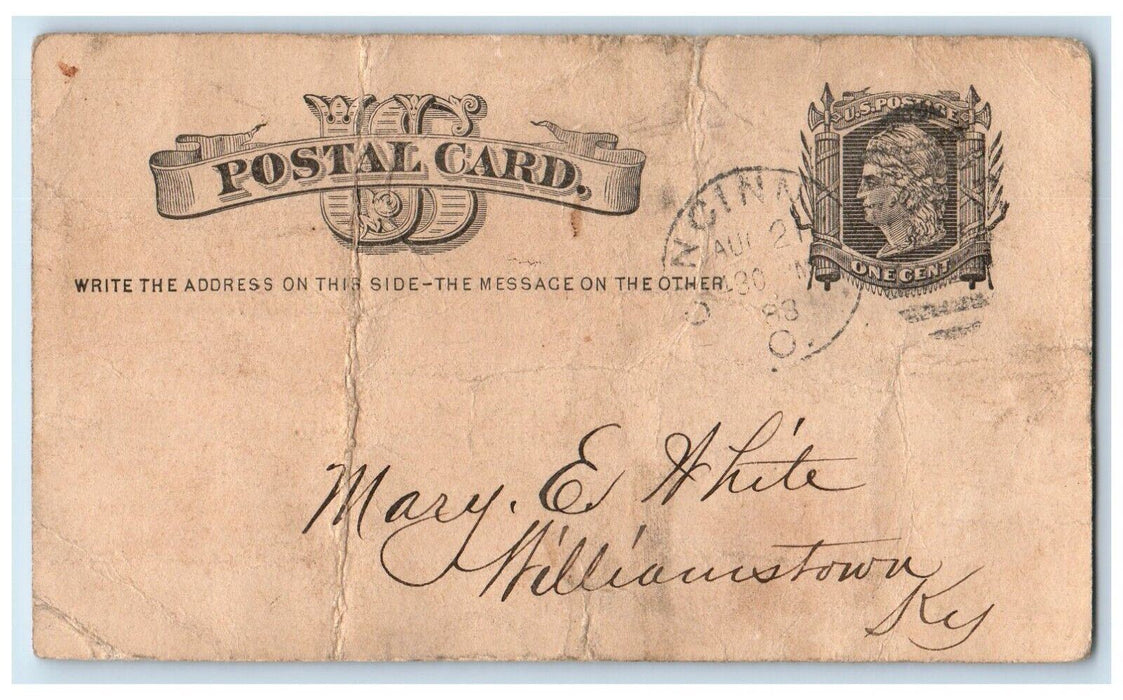 US
POSTAL CARD.
U.S. POSTAGE
ONE CENT
WRITE THE ADDRESS ON THIS SIDE–THE MESSAGE ON THE OTHER.
CINCINNA
AUG 21
30
88
O.
Mary. E. White
Williamstown
Ky